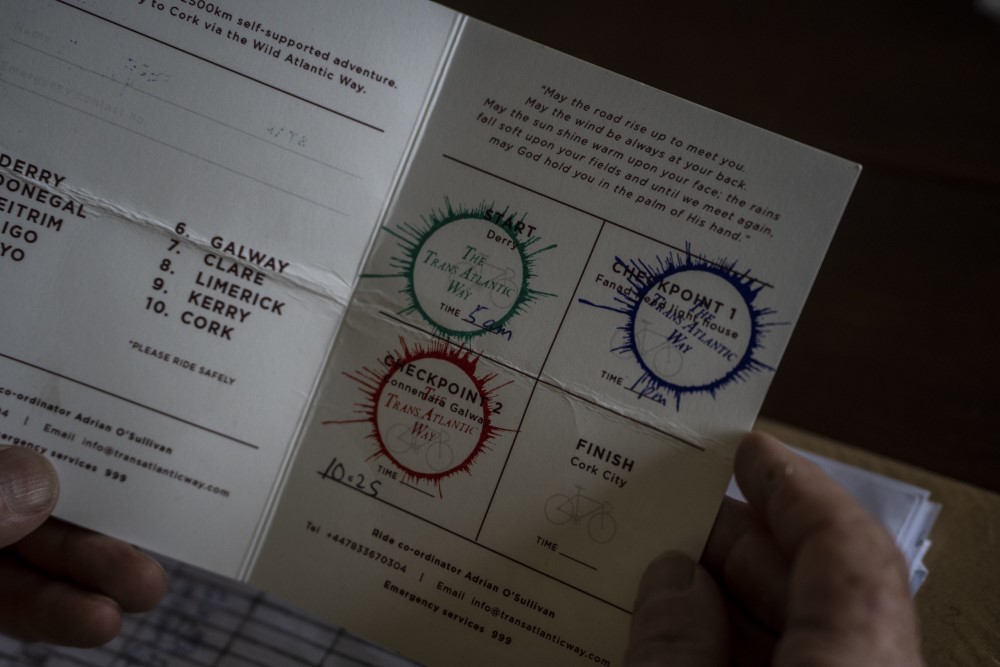 2500km self-supported adventure.
to Cork via the Wild Atlantic Way.
Emergency contact no
DERRY
DONEGAL
LEITRIM
SLIGO
MAYO
6. GALWAY
7. CLARE
8. LIMERICK
9. KERRY
10. CORK
*PLEASE RIDE SAFELY
co-ordinator Adrian O'Sullivan
Email info@transatlanticway.com
Emergency services 999
"May the road rise up to meet you.
May the wind be always at your back.
May the sun shine warm upon your face; the rains
fall soft upon your fields and until we meet again,
may God hold you in the palm of His hand."
START
Derry
THE
TRANS ATLANTIC
WAY
TIME 5am
CHECKPOINT 1
Fanad Head lighthouse
THE
TRANS ATLANTIC
WAY
TIME 1pm
CHECKPOINT 2
Connemara Galway
THE
TRANS ATLANTIC
WAY
TIME
10.25
FINISH
Cork City
TIME
Ride co-ordinator Adrian O'Sullivan
Tel +447833670304 | Email info@transatlanticway.com
Emergency services 999